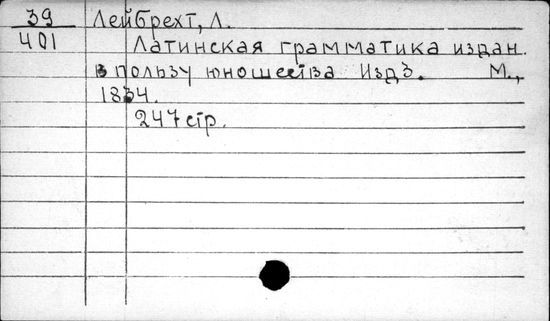 39 Лейбрехт, Л.
401 Латинская грамматика издан.
в пользу юношества Изд3. М.,
1834.
247 стр.